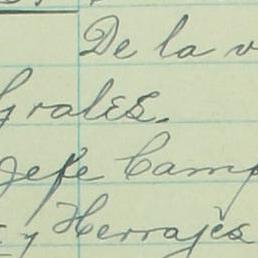 De la v
Grales.
Jefe Camp
y Herrajes